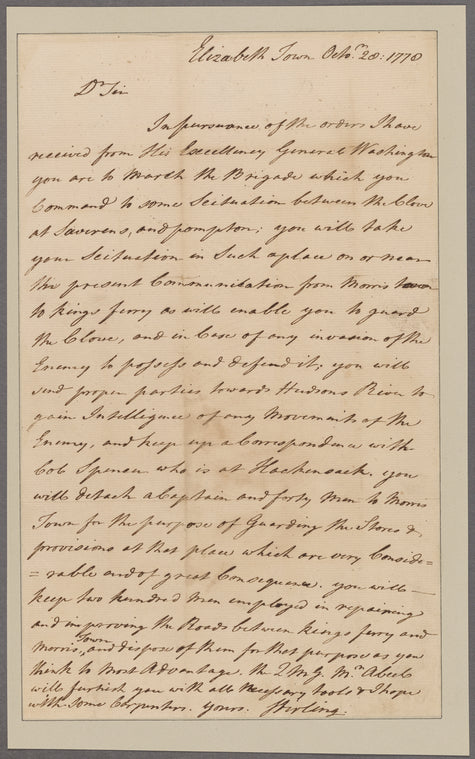 Elizabeth Town Octo.r 28: 1778
Dr Sir
In pursuance of the orders I have
received from His Excellency General Washington
you are to March the Brigade which you
Command to some Scituation between the Clove
at Saverens, and pompton; you will take
your Scituation in Such a place on or near
the present Communication from Morris town
to Kings ferry as will enable you to guard
the Clove, and in Case of any invasion of the
Enemy to possess and defend it; you will
send proper parties towards Hudsons River to
gain Intelligence of any Movements of the
Enemy, and keep up a Correspondence with
Col. Spencer who is at Hackensack. you
will detach a Captain and forty Men to Morris
Town for the purpose of Guarding the Stores &
provisions at that place which are very Conside=
=rable and of great Consequence. you will
keep two hundred Men employed in repairing
and improving the Roads between Kings ferry and
Morris Town, and dispose of them for that purpose as you
think to Most Advantage. the Q M G. Mr. Abeel
will furnish you with all Necessary tools & I hope
with Some Carpenters. yours. Stirling.